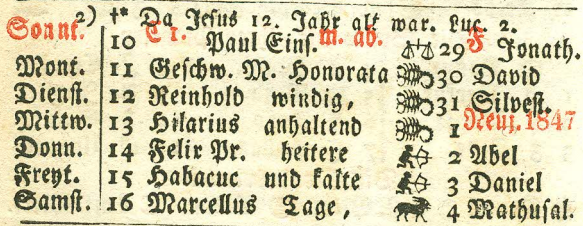 2) †* Da Jesus 12. Jahr alt war. Luc. 2.
Sonnt. 10 E 1. Paul Eins. m. ab. 29 F Jonath.
Mont. 11 Geschw. M. Honorata 30 David
Dienst. 12 Reinhold windig, 31 Silvest.
Mittw. 13 Hilarius anhaltend 1 Neuj. 1847
Donn. 14 Felix Pr. heitere 2 Abel
Freyt. 15 Habacuc und kalte 3 Daniel
Samst. 16 Marcellus Tage, 4 Mathusal.